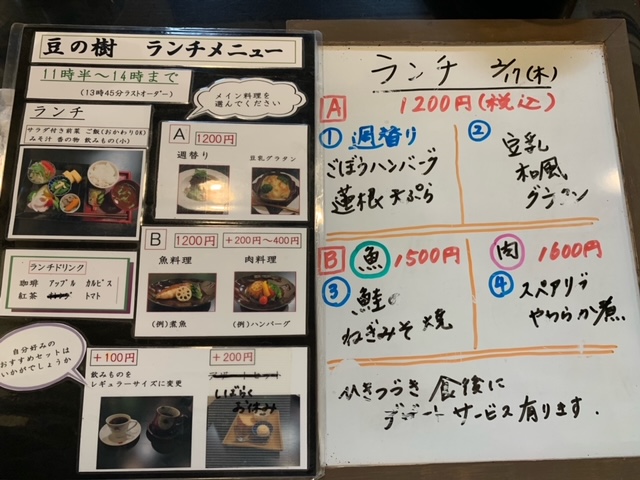 豆の樹 ランチメニュー
11時半～14時まで
(13時45分ラストオーダー)
メイン料理を
選んでください
ランチ
サラダ付き前菜 ご飯(おかわりOK)
みそ汁 香の物 飲みもの(小)
A 1200円
週替り 豆乳グラタン
B 1200円 +200円～400円
魚料理 肉料理
(例)煮魚 (例)ハンバーグ
ランチドリンク
珈琲 アップル カルピス
紅茶 トマト
自分好みの
おすすめセットは
いかがでしょうか
+100円
飲みものを
レギュラーサイズに変更
+200円
デザートセット
しばらく
お休み
ランチ 2/17(木)
A 1200円(税込)
①週替り
ごぼうハンバーグ
蓮根天ぷら
②
豆乳
和風
グラタン
B 魚 1500円
③鮭の
ねぎみそ焼
肉 1600円
④スペアリブ
やわらか煮
ひきつづき 食後に
デザートサービス有ります.